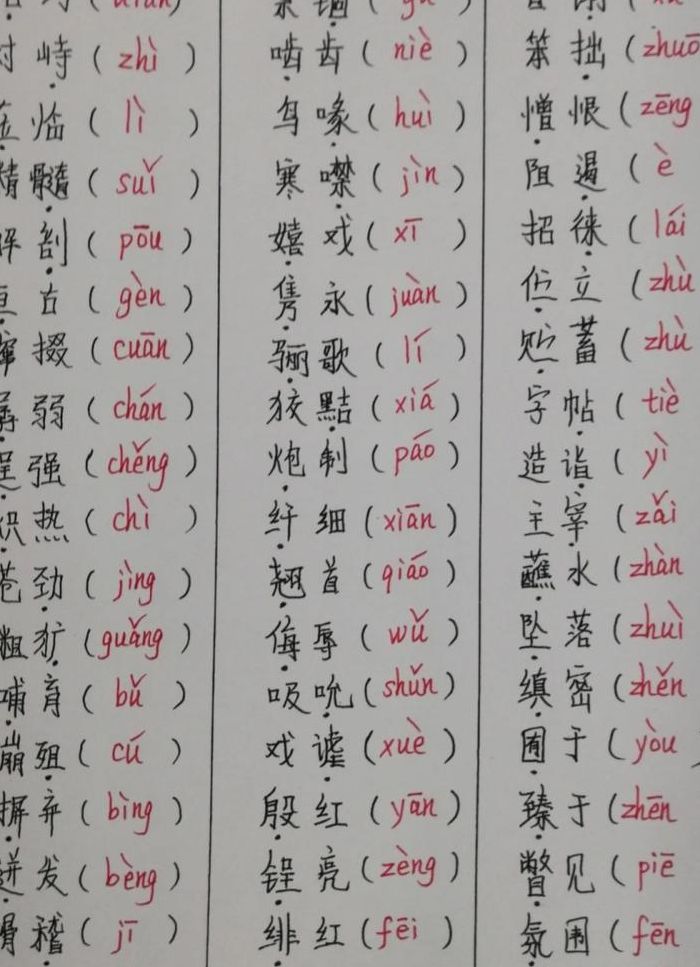 峙 (zhì) 啮齿 (niè) 笨拙 (zhuō
临 (lì) 鸟喙 (huì) 憎恨 (zēng
精髓 (suǐ) 寒噤 (jìn) 阻遏 (è
剖 (pōu) 嬉戏 (xī) 招徕 (lái
亘古 (gèn) 隽永 (juàn) 伫立 (zhù
撺掇 (cuān) 骊歌 (lí) 贮蓄 (zhù
孱弱 (chán) 狡黠 (xiá) 字帖 (tiè
逞强 (chěng) 炮制 (páo) 造诣 (yì
炽热 (chì) 纤细 (xiān) 主宰 (zǎi
苍劲 (jìng) 翘首 (qiáo) 蘸水 (zhàn
粗犷 (guǎng) 侮辱 (wǔ) 坠落 (zhuì
哺育 (bǔ) 吸吮 (shǔn) 缜密 (zhěn
崩殂 (cú) 戏谑 (xuè) 囿于 (yòu)
摒弃 (bìng) 殷红 (yān) 臻于 (zhēn
迸发 (bèng) 锃亮 (zèng) 瞥见 (piē
滑稽 (jī) 绯红 (fēi) 氛围 (fēn